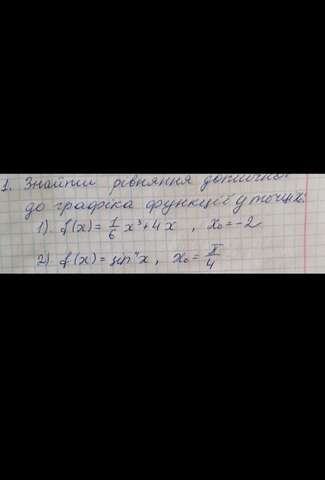 1. Знайти рівняння дотичної
до графіка функції у точці:
1) f(x) = 1/6 x³ + 4x , x₀ = -2
2) f(x) = sin⁴x , x₀ = π/4